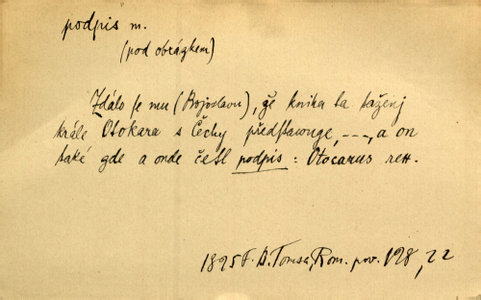 podpis m.
(pod obrázkem)
Zdálo se mu (Bojoslavu), že kniha ta taženj
krále Otokara s Čechy předstawuge, ---, a on
také gde a onde četl podpis : Otocarus rex.
1825 F. B. Tomsa, Rom. pov. 128, 22